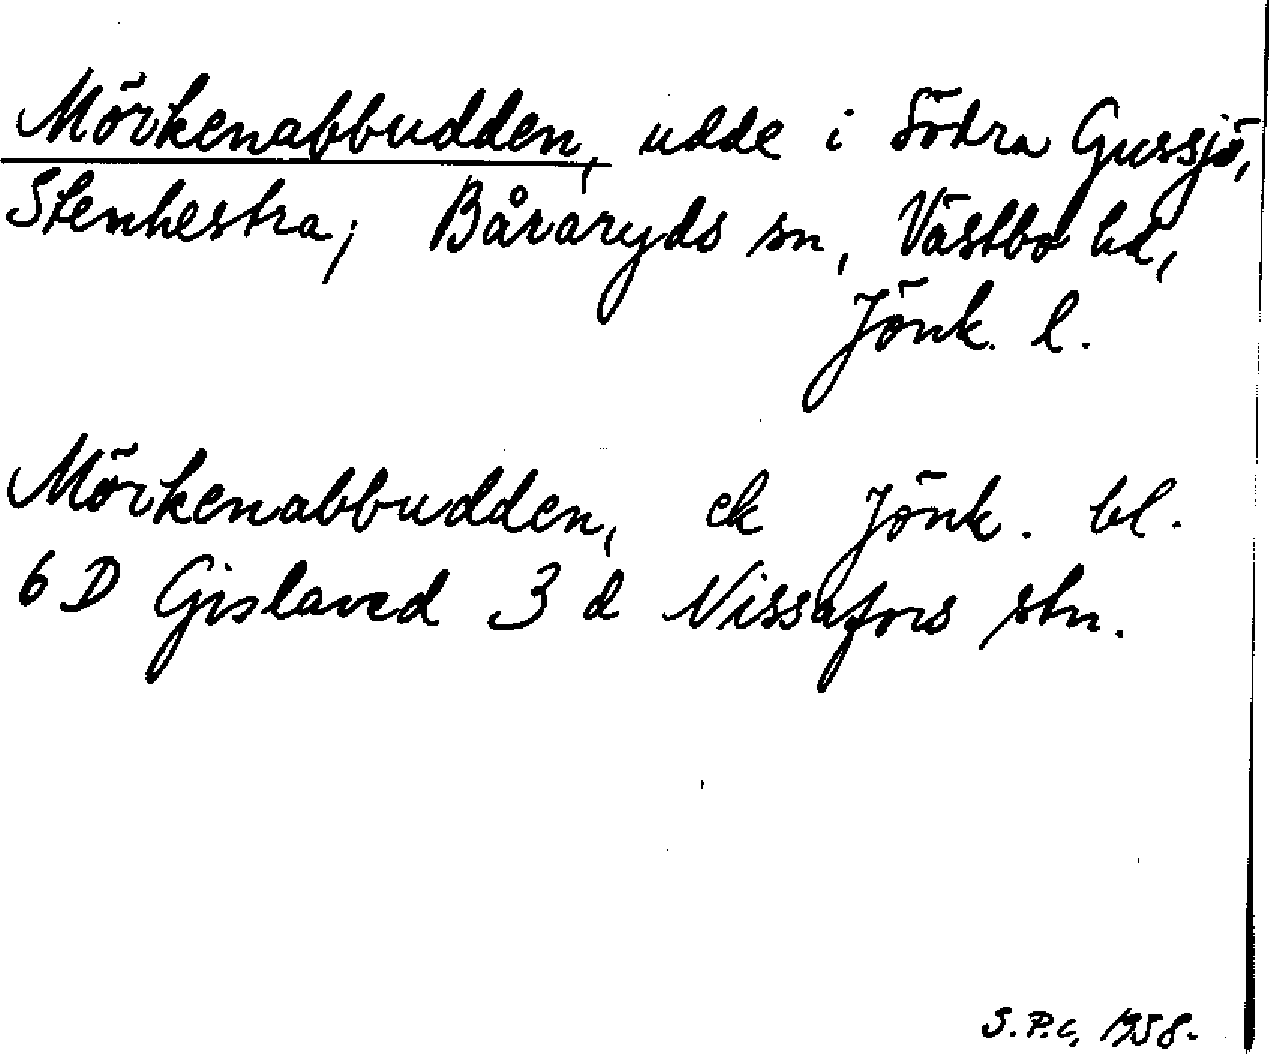 Mörkenabbudden, udde i Södra Gussjö,
Stenhestra, Båraryds sn, Västbo hd,
Jönk. l.
Mörkenabbudden, ek Jönk. bl.
6 D Gislaved 3 d Nissafors stn.
S.P.C, 1958.